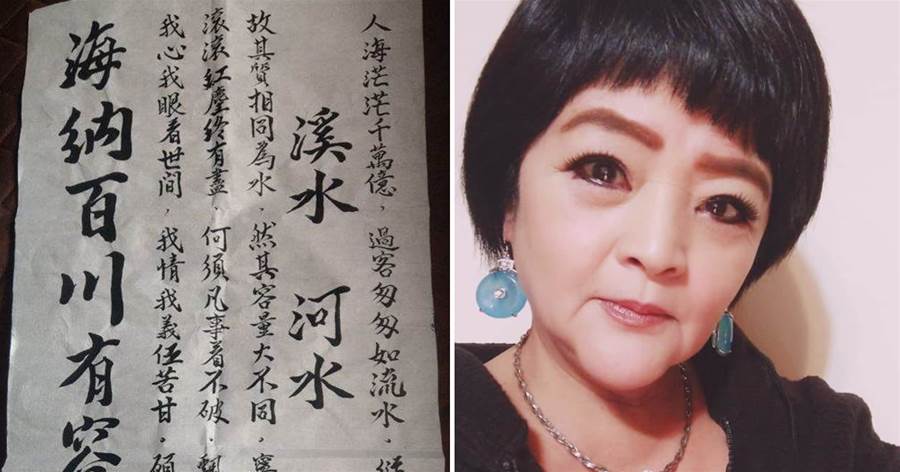 人海茫茫千萬億，過客匆匆如流水，
溪水 河水
故其質相同為水，然其容量大不同，
滾滾紅塵終有盡，何須凡事看不破，
我心我眼看世间，我情我義伍苦甘，
海納百川有容